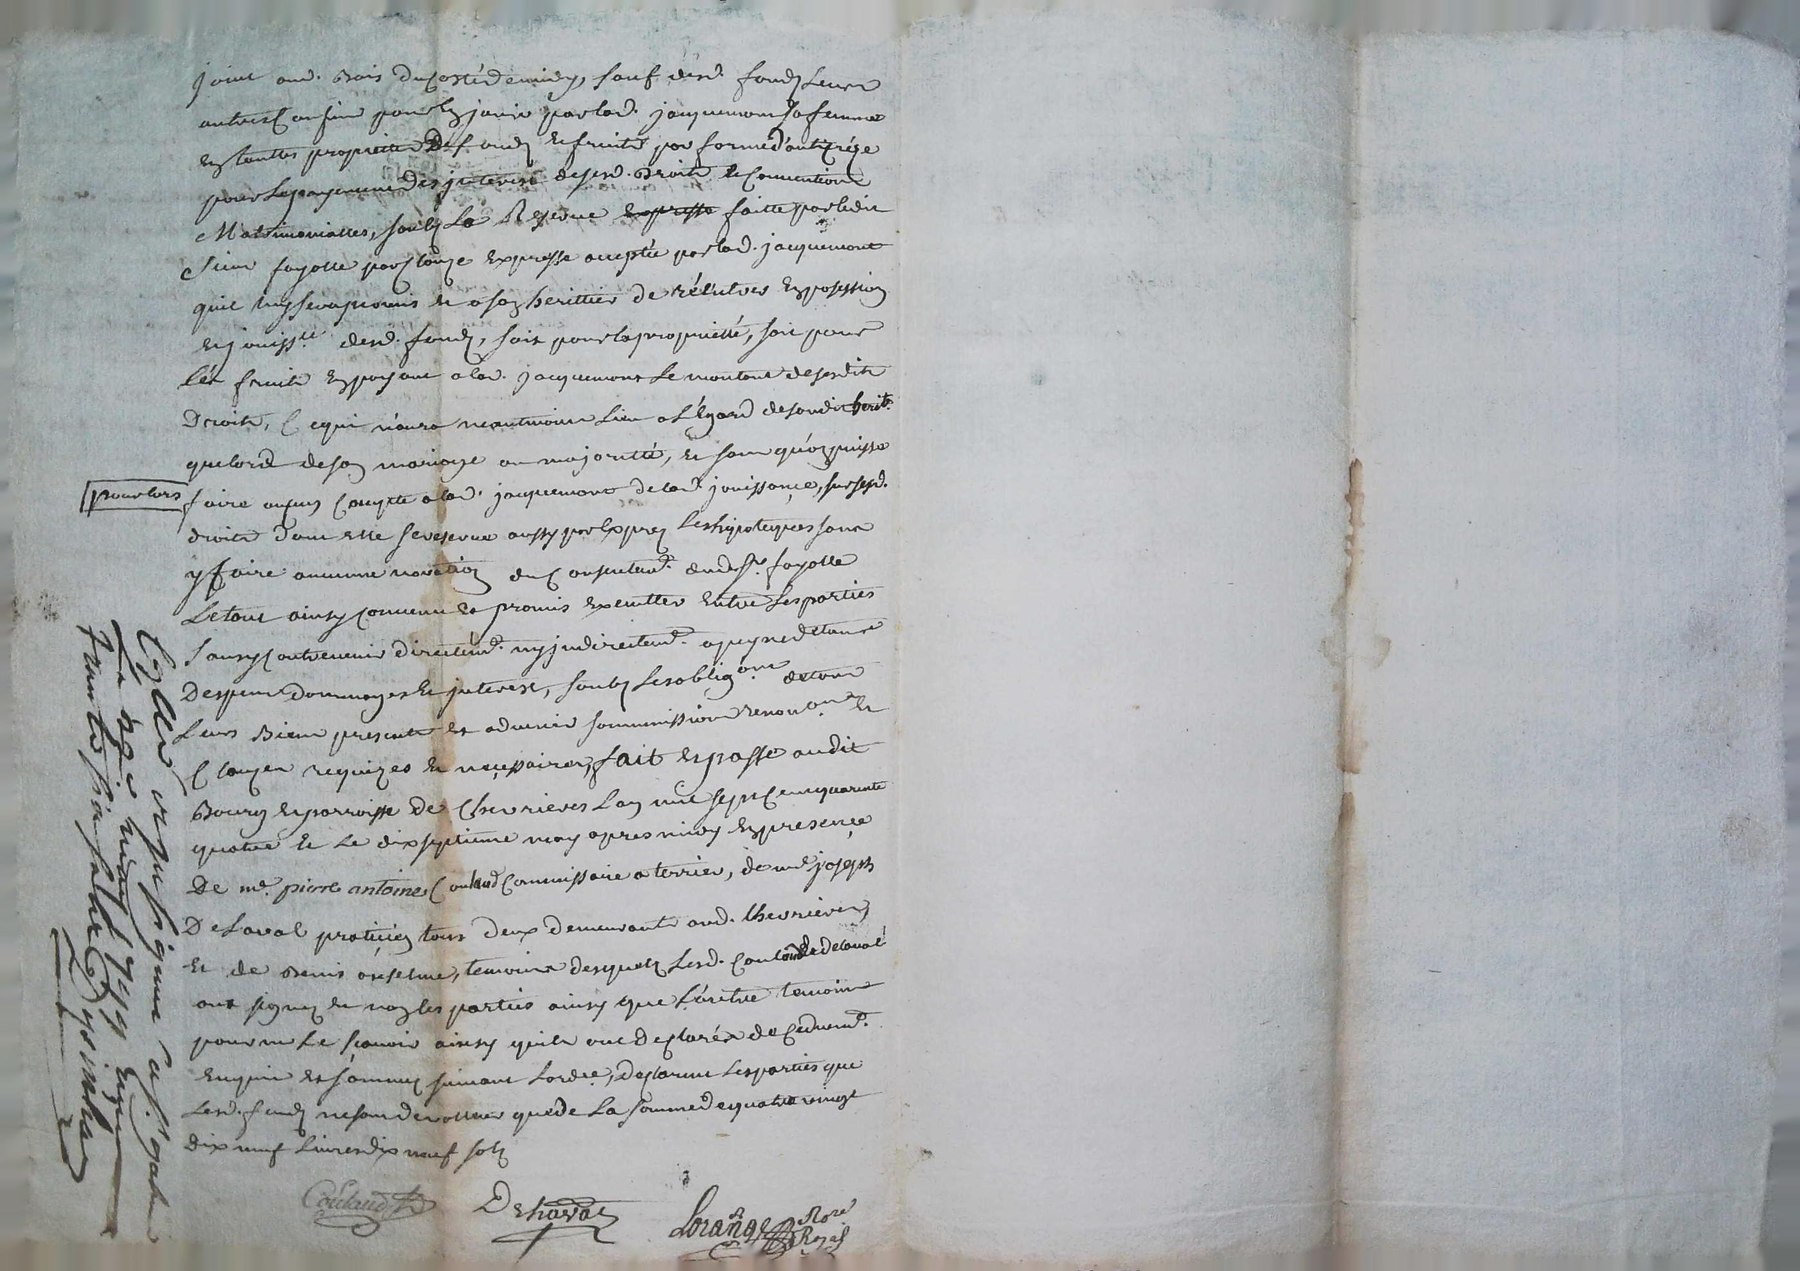 joint aud. Bois du costé de midy, sauf desd. fonds leurs
autres confins pour en jouir par lad. jacquemont sa femme
en toutte proprietté Desd. fonds et fruits par forme d'anticréze
pour le payement des interest desesd. Droits et Conventions
Matrimonialles, soubs La Reserve expresse faitte par ledit
Sieur fayolle par clauze Expresse acceptée par lad. jacquemont
quil luy sera promis et a son herittier de réentrer En posession
et jouiss.ce desd. fonds, soit pour la proprietté, soit pour
lés fruits En payant a lad. jacquemont Le montant desesdits
Droits, Ce qui n'aura neantmoins Lieu a L'égard desondit herit.
que lors de son mariage ou majoritté, et sans qu'on puisse
pour lors
faire aucun Compte a lad. jacquemont de lad. jouissance, sur sesd.
droits dont elle se reserve aussy par Exprez Les hipoteques sans
y faire aucunne novation du Consentem.t dud. Sr. fayolle
Le tout ainsy Convenu et promis Executter Entre Les parties
sans y Contrevenir directem.t ny indirectem.t a peyne de tous
Despens Dommages et interest, soubs Les oblig.ons de tous
Leurs Biens presents et advenir soummissions renon.ons et
Clauzes requizes et necessaires, fait et passé audit
Bourg et parroisse de Chevrieres L'an mil sept Cent quarente
quatre et Le dix septieme may apres midy En presence
De me. pierre antoine Coulaud Commissaire a terrier, de me. joseph
DeLaval praticien tous deux demeurants aud. Chevrieres
Et de Denis anselme, temoins desquels Lesd. Coulaud et delaval
ont signez et non les parties ainsy que L'autre temoins
pour ne Le scavoir ainsy quils ont desclaréz de ce duem.t
Enquis et sommez suivant Lordce, Desclarent Les parties que
Lesd. fonds ne sont de valleur que de La somme de quatre vingt
dix neuf Livres dix neuf sols
Coulaud
DeLaval
Lorange Nore
Royal